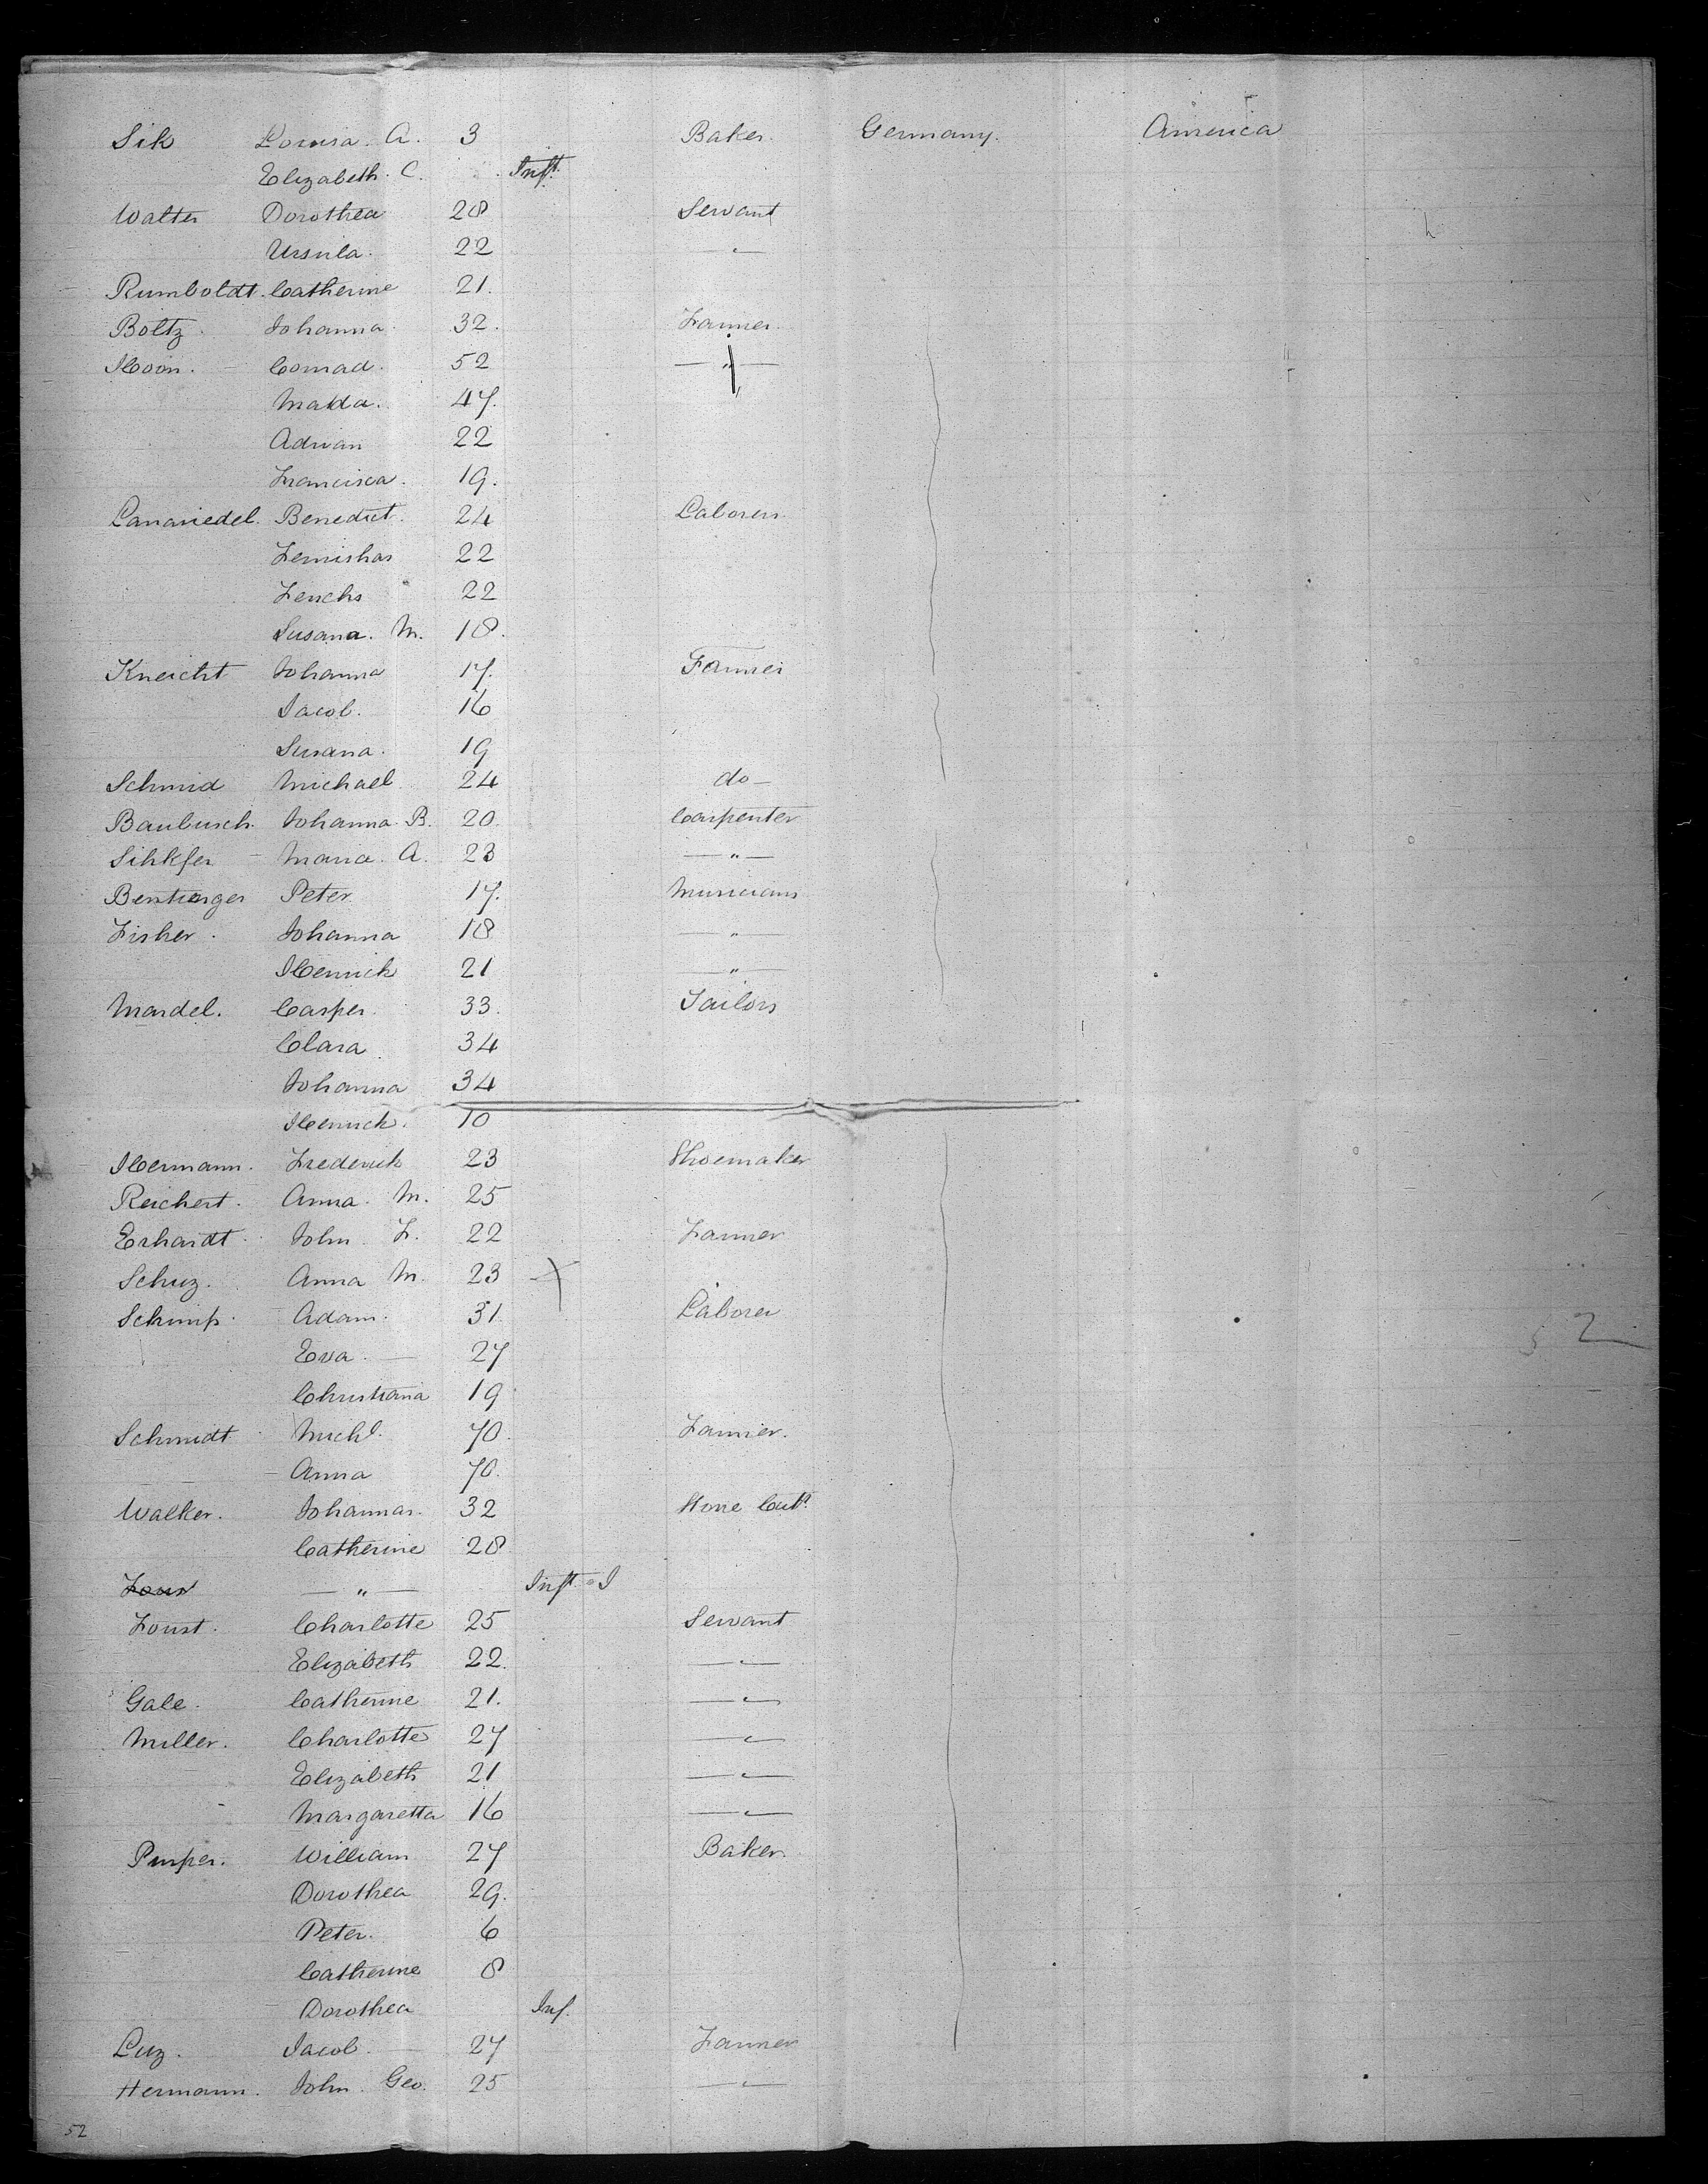 Sik Louisa. A. 3 Baker. Germany. America
Elizabeth. C. Inft.
Walter Dorothea 28 Servant
Ursula. 22 — " —
Rumboldt. Catherine 21.
Boltz. Johanna. 32. Farmer.
Hoon. Conrad. 52 — " —
47.
Adrian 22
Francisca. 19.
Benedict. 24 Laborers
22
22
Susana. M. 18.
Kneicht Johanna 17. Farmer
Jacob. 16
Susana. 19
Schmid Michael 24 do —
Baubusch. Johanna. B. 20. Carpenter
Maria. A. 23 — " —
Peter 17. Musicians
Fisher. Johanna 18 — " —
Henrich 21 — " —
Mardel. Casper. 33. Tailors
Clara. 34
Johanna 34
Henrich. 10
Hermann. Frederick 23 Shoemaker
Reichert. Anna. M. 25
Erhardt. John. F. 22 Farmer
Schuz. Anna M. 23
Schimp. Adam. 31. Laborer
Eva. — 27
Christiana 19
Schmidt. Michl. 70. Farmer.
Anna 70.
Walker. Johannas. 32 Stone Cutr.
Catherine 28
— " — Inft.
Foust. Charlotte 25 Servant
Elizabeth 22. — " —
Gale. Catherine 21. — " —
Miller. Charlotte 27 — " —
Elizabeth 21 — " —
Margaretta 16 — " —
William 27 Baker.
Dorothea 29.
Peter. 6
Catherine 8
Dorothea Inf.
Luz. Jacob. — 27 Farmer
Hermann. John. Geo. 25 — " —
52